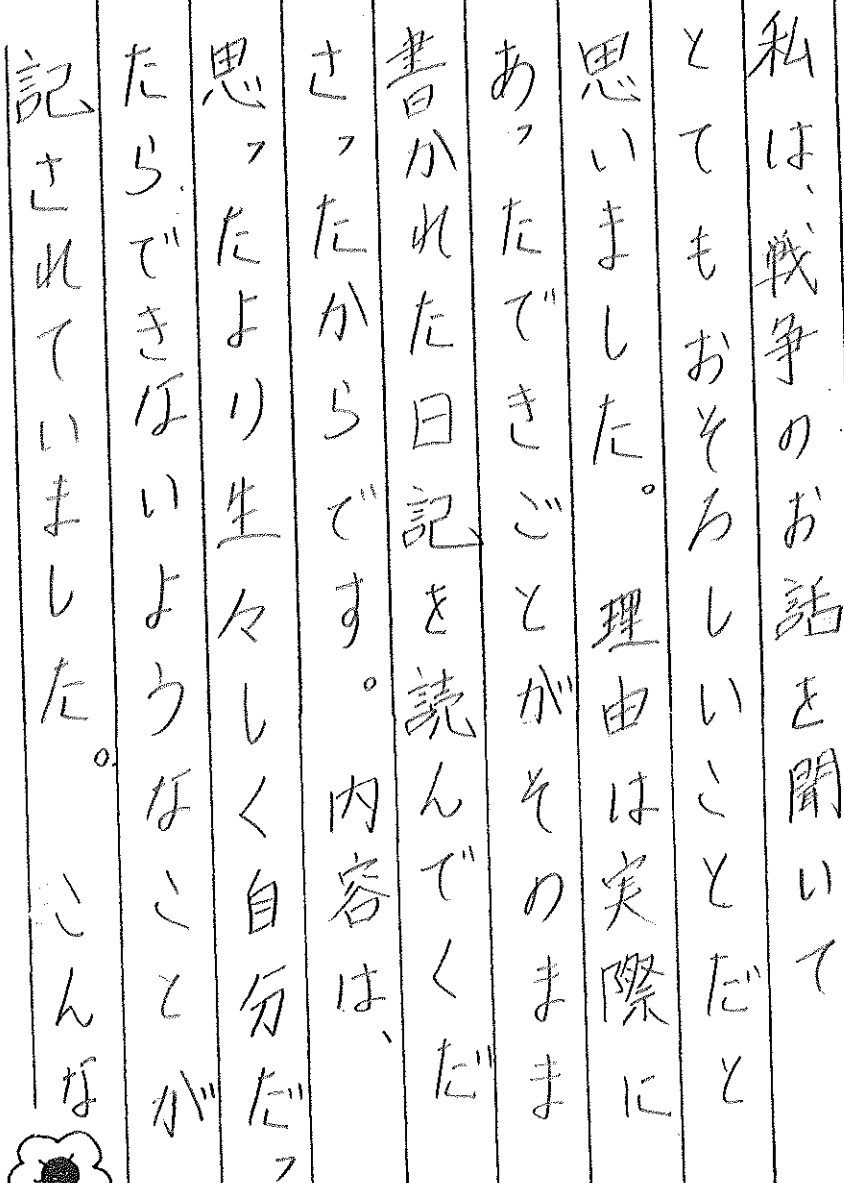 私は、戦争のお話を聞いて
とてもおそろしいことだと
思いました。理由は実際に
あったできごとがそのまま
書かれた日記を読んでくだ
さったからです。内容は、
思ったより生々しく自分だっ
たらできないようなことが
記されていました。こんな